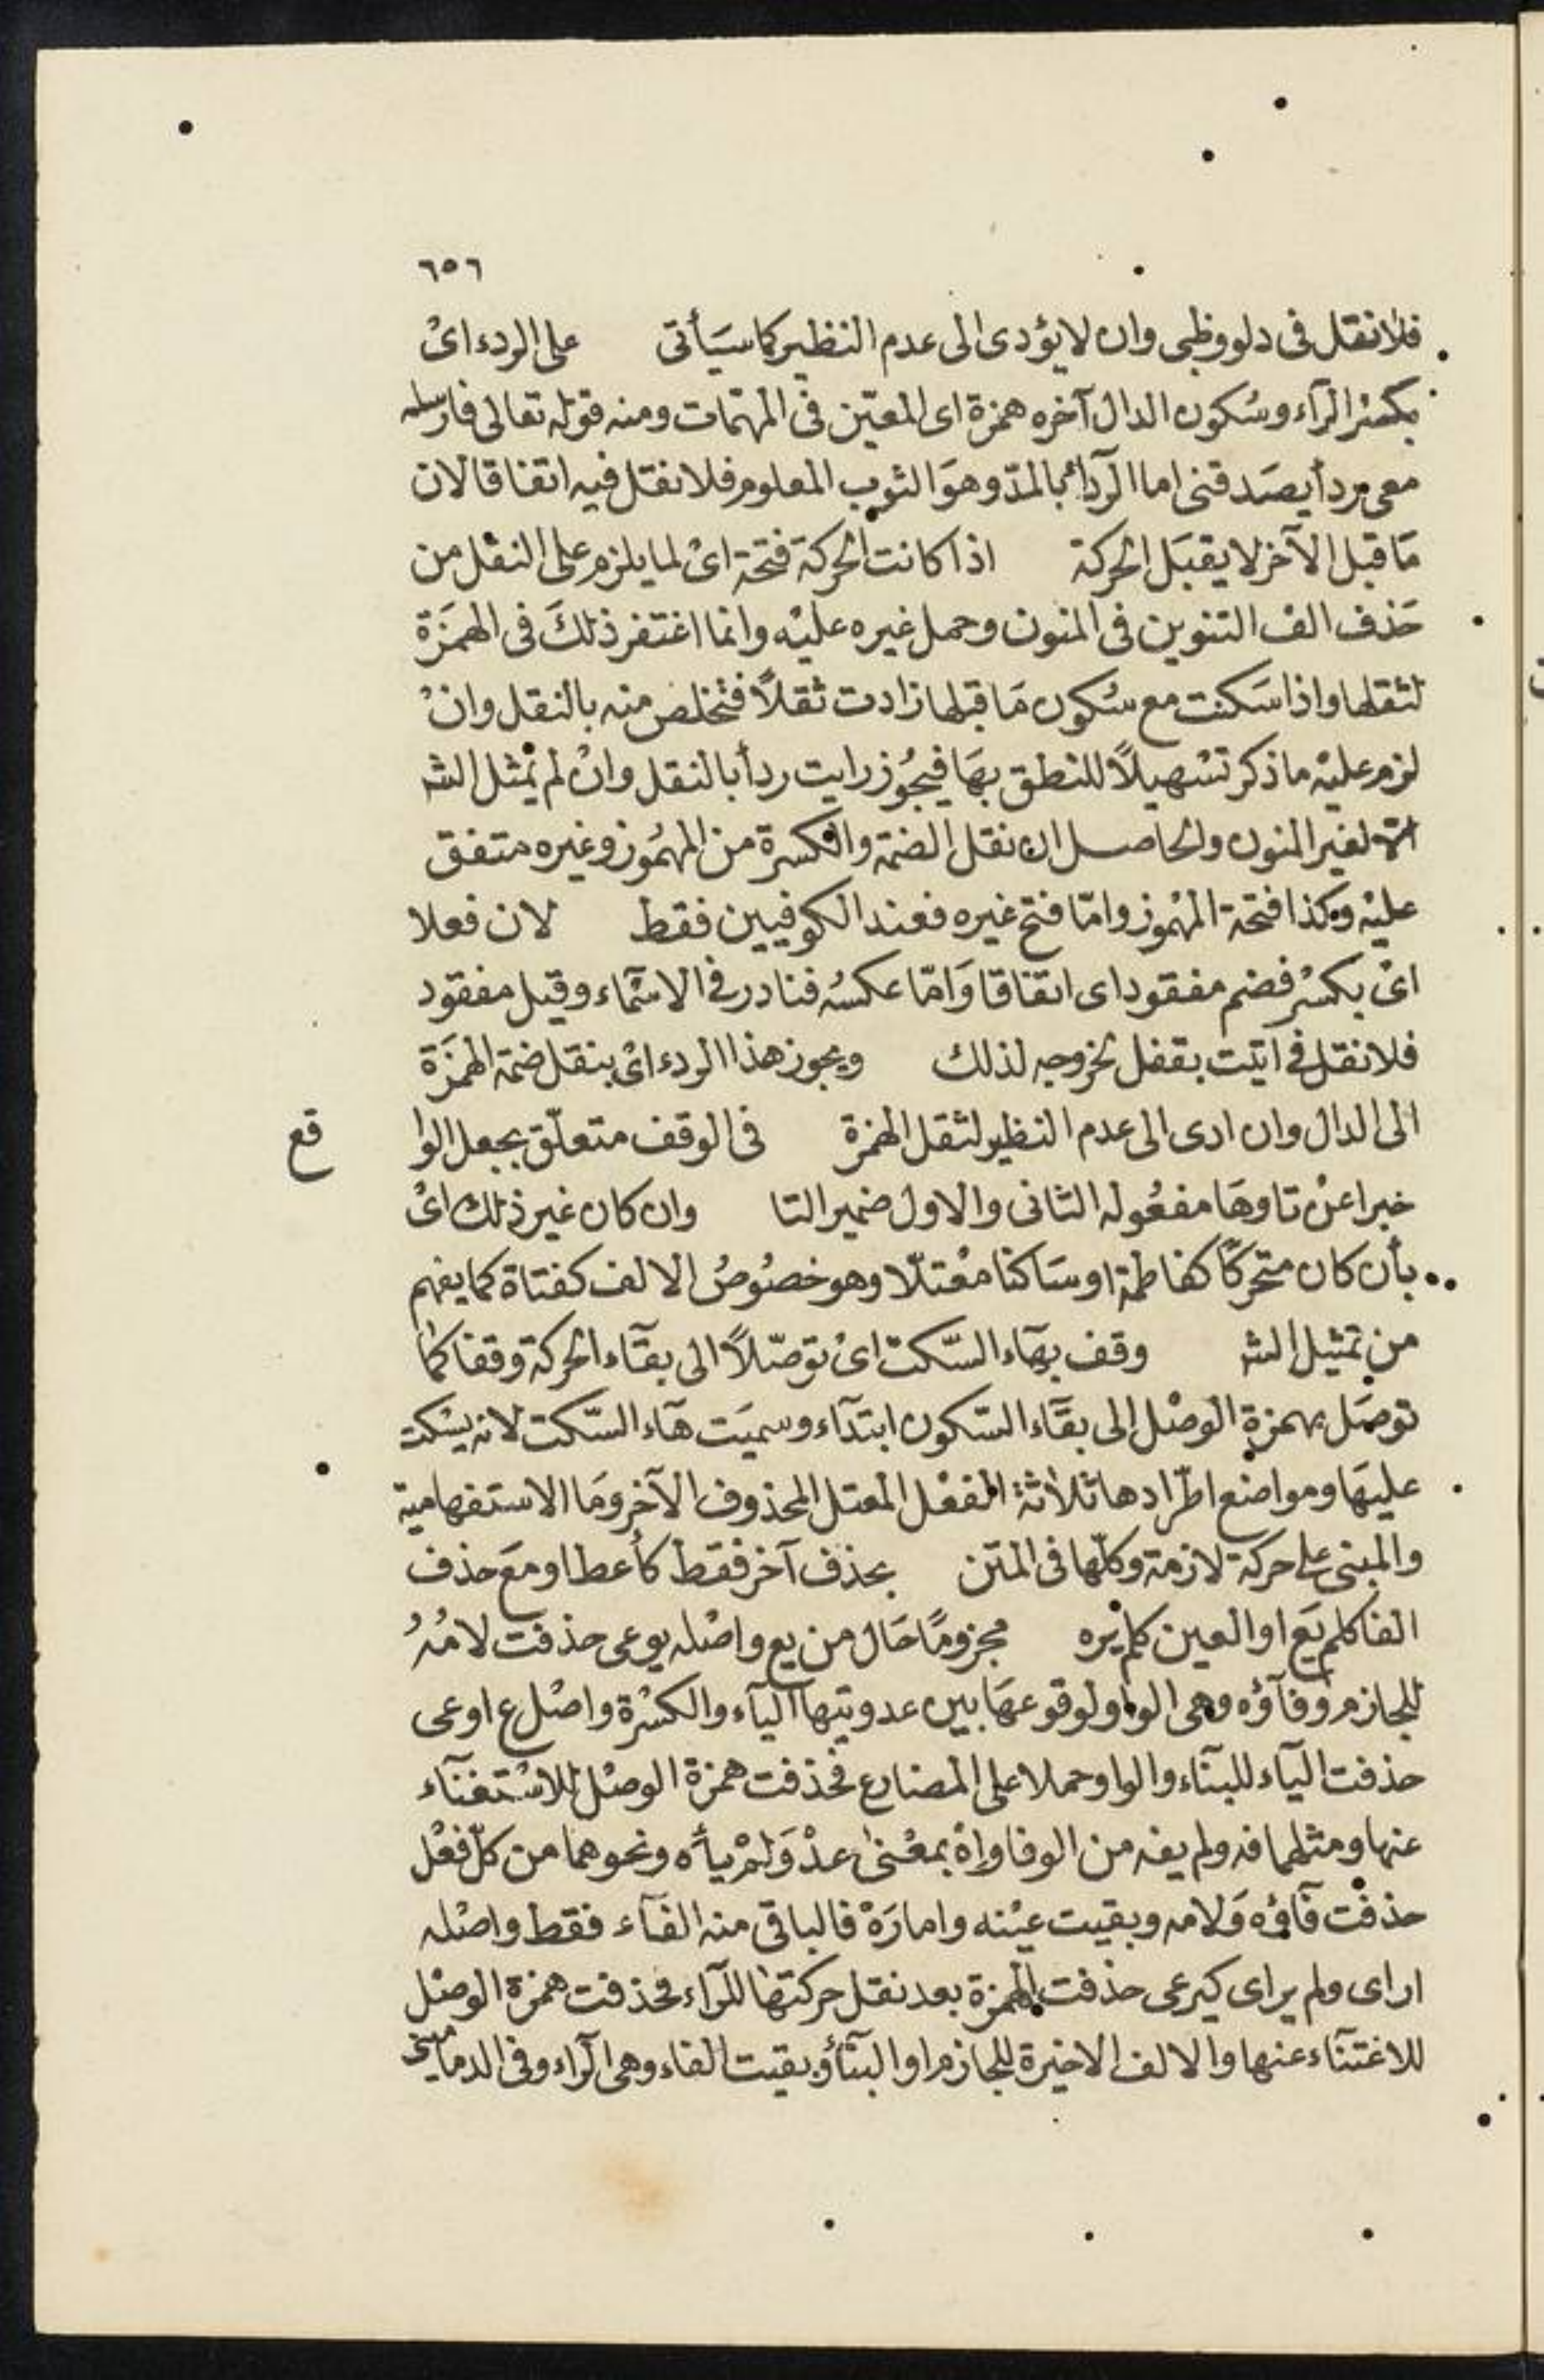 ٦٥٦
فلا نقل فى دلو وظبى وان لا يؤدى الى عدم النظير كما سيَأتى على الردء اىْ
بكسْر الرآء وسُكون الدال آخره همزة اى المعيّن فى المهمّات ومنه قوله تعالى فارسله
معى ردأ يصَدقنى اما الردآء بالمدّ وهوَ الثوب المعلوم فلا نقل فيه اتفاقا لان
مَا قبل الآخر لا يقبَل الحركة اذا كانت الحركة فتحة اىْ لما يلزم على النقل من
حَذف الف التنوين فى المنون وحمل غيره عليْه وانما اغتفر ذلكَ فى الهمَزة
لثقلها واذا سَكنت مع سُكون مَا قبلها زادت ثقلاً فتخلص منه بالنقل وانْ
لزم عليْه ما ذكر تسْهيلاً للنطق بهَا فيجُوز رايت ردأ بالنقل وانْ لم يمْثل الشـ
الا لغير المنون والحاصل ان نقل الضمة والكسرة من المهمُوز وغيره متفق
عليْه وكذا فتحة المهْموز وامّا فتح غيره فعند الكوفيين فقط لان فعلا
اىْ بكسْر فضم مفقود اى اتفاقا وَامّا عكسُه فنادر فى الاسْماء وقيل مفقود
فلا نقل فى اتيت بقفل لخروجه لذلك ويجوز هذا الردء اىْ بنقل ضمة الهمَزة
الى الدال وان ادى الى عدم النظير لثقل الهمزة فى الوقف متعلّق بجعل الوا قع
خبرا عنْ تا وهَا مفعُوله الثانى والاول ضمير التا وان كان غير ذلك اىْ
بأن كان متحركًا كفاطمة او سَاكنا معْتلّا وهو خصُوصُ الالف كفتاة كما يفهم
من تمثيل الشـ وقف بهَآء السّكت اىْ توصّلاً الى بقآء الحركة وقفا كما
توصَل بهمزة الوصْل الى بقآء السّكون ابتدآء وسميَت هآء السّكت لانه يسْكت
عليهَا ومواضع اطّرادها ثلاثة الفعْل المعتل المحذوف الآخر ومَا الاستفهامية
والمبنى على حركة لازمة وكلّها فى المتن بحذف آخر فقط كأعطا ومعَ حذف
الفا كلم يَع او العين كلم يْره مجزومًا حَال من يع واصْله يوعى حذفت لامُهُ
للجازم وفآؤه وهى الواو لوقوعهَا بين عدوتيها اليآء والكسْرة واصْل ع اوعى
حذفت اليآء للبنآء والواو حملا على المضارع فحذفت همزة الوصْل للاسْتغنآء
عنها ومثلهما فه ولم يفه من الوفا وإهْ بمعْنى عدْ وَلمْ يأه ونحوهما من كلّ فعْل
حذفت فآؤه وَلامه وبقيت عيْنه واما رَهْ فالباقى منه الفآء فقط واصْله
ار اى ولم ير اى كيرعى حذفت الهمزة بعد نقل حركتها للرآء فحذفت همزة الوصْل
للاغتنآء عنها والالف الاخيرة للجازم او البنآؤ بقيت الفاء وهى الرآء وفى الدمامينى